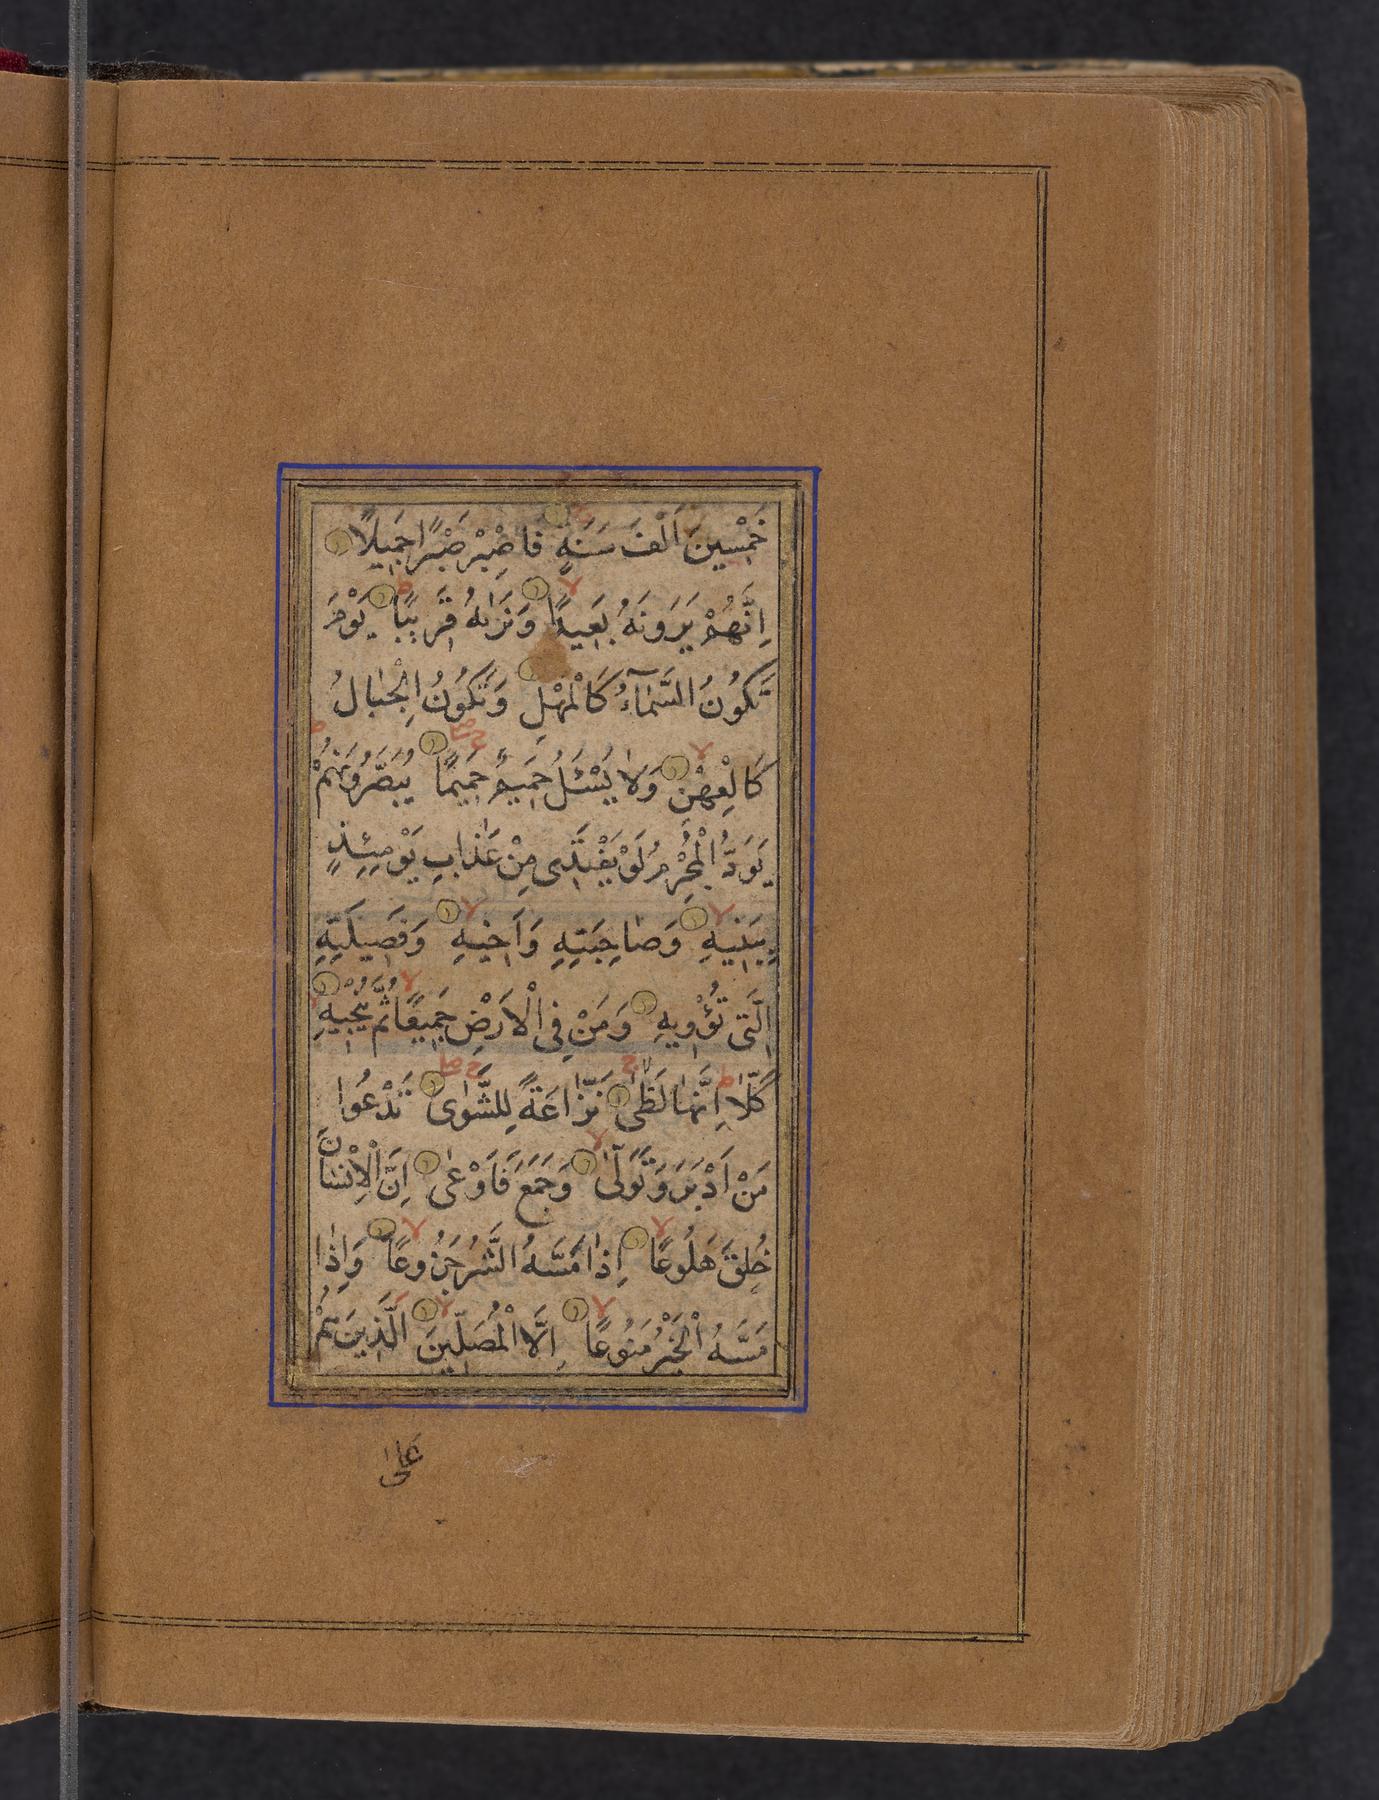 خَمْسِينَ اَلْفَ سَنَةٍ فَاصْبِرْ صَبْرًا جَمِيلًا
اِنَّهُمْ يَرَوْنَهُ بَعِيدًا وَنَرٰىهُ قَرِيبًا يَوْمَ
تَكُونُ السَّمَاۤءُ كَالْمُهْلِ وَتَكُونُ الْجِبَالُ
كَالْعِهْنِ وَلَا يَسْـَٔلُ حَمِيمٌ حَمِيمًا يُبَصَّرُونَهُمْ
يَوَدُّ الْمُجْرِمُ لَوْ يَفْتَدِى مِنْ عَذَابِ يَوْمِئِذٍ
بِبَنِيهِ وَصَاحِبَتِهِ وَاَخِيهِ وَفَصِيلَتِهِ
الَّتِى تُؤْوِيهِ وَمَنْ فِى الْاَرْضِ جَمِيعًا ثُمَّ يُنْجِيهِ
كَلَّا اِنَّهَا لَظٰى نَزَّاعَةً لِلشَّوٰى تَدْعُوا
مَنْ اَدْبَرَ وَتَوَلّٰى وَجَمَعَ فَاَوْعٰى اِنَّ الْاِنْسَانَ
خُلِقَ هَلُوعًا اِذَا مَسَّهُ الشَّرُّ جَزُوعًا وَاِذَا
مَسَّهُ الْخَيْرُ مَنُوعًا اِلَّا الْمُصَلِّينَ الَّذِينَ هُمْ
عَلٰى